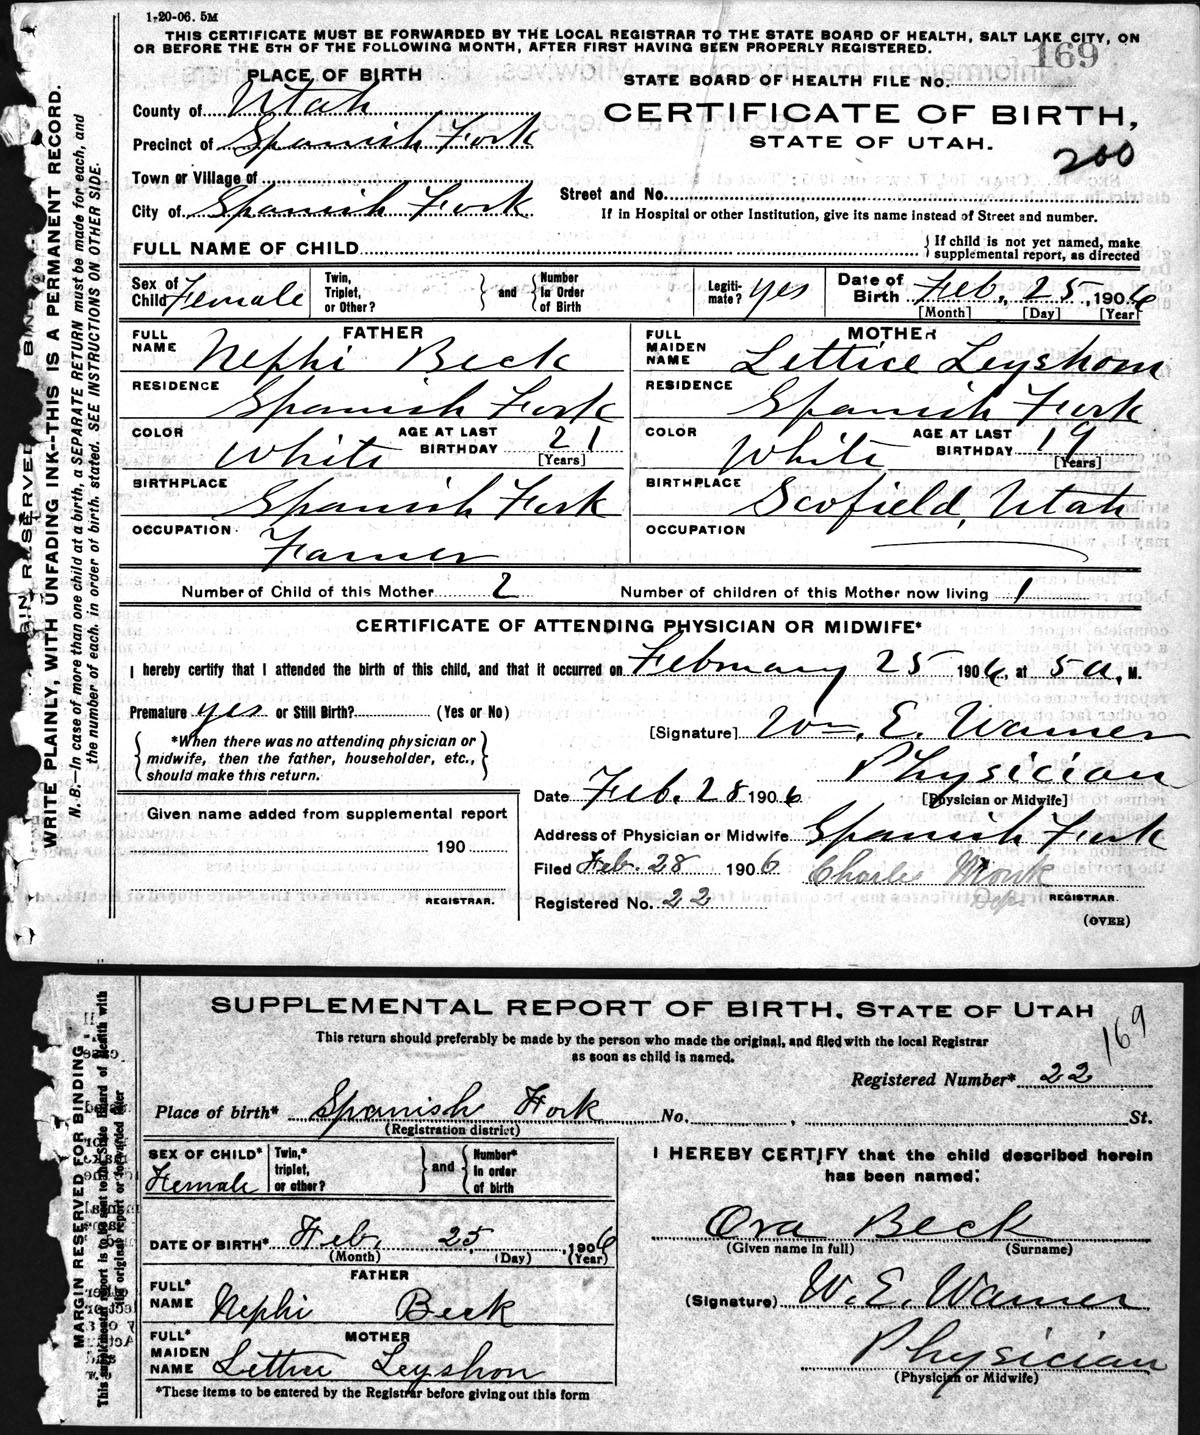 1-20-06. 5M
THIS CERTIFICATE MUST BE FORWARDED BY THE LOCAL REGISTRAR TO THE STATE BOARD OF HEALTH, SALT LAKE CITY, ON
OR BEFORE THE 5TH OF THE FOLLOWING MONTH, AFTER FIRST HAVING BEEN PROPERLY REGISTERED.
169
PLACE OF BIRTH
STATE BOARD OF HEALTH FILE No.
County of Utah
CERTIFICATE OF BIRTH,
Precinct of Spanish Fork
STATE OF UTAH.
200
Town or Village of
Street and No.
City of Spanish Fork
If in Hospital or other Institution, give its name instead of Street and number.
FULL NAME OF CHILD
If child is not yet named, make
supplemental report, as directed
Sex of Child Female
Twin, Triplet, or Other?
and
Number In Order of Birth
Legiti-mate? yes
Date of Birth Feb, 25, 1906
[Month] [Day] [Year]
FATHER
MOTHER
FULL NAME Nephi Beck
FULL MAIDEN NAME Lettice Leyshom
RESIDENCE Spanish Fork
RESIDENCE Spanish Fork
COLOR White AGE AT LAST BIRTHDAY 21 [Years]
COLOR White AGE AT LAST BIRTHDAY 19 [Years]
BIRTHPLACE Spanish Fork
BIRTHPLACE Scofield, Utah
OCCUPATION Farmer
OCCUPATION
Number of Child of this Mother 2 Number of children of this Mother now living 1
CERTIFICATE OF ATTENDING PHYSICIAN OR MIDWIFE*
I hereby certify that I attended the birth of this child, and that it occurred on February 25 1906, at 5 a, M.
Premature yes or Still Birth? (Yes or No)
[Signature] Wm. E. Warner
*When there was no attending physician or
midwife, then the father, householder, etc.,
should make this return.
Physician
[Physician or Midwife]
Date Feb. 28 1906
Given name added from supplemental report
190
REGISTRAR.
Address of Physician or Midwife Spanish Fork
Filed Feb. 28 1906 Charles Monk
Dep. REGISTRAR.
Registered No. 22
(OVER)
WRITE PLAINLY, WITH UNFADING INK--THIS IS A PERMANENT RECORD.
N. B.—In case of more than one child at a birth, a SEPARATE RETURN must be made for each, and
the number of each, in order of birth, stated. SEE INSTRUCTIONS ON OTHER SIDE.
SUPPLEMENTAL REPORT OF BIRTH. STATE OF UTAH
169
This return should preferably be made by the person who made the original, and filed with the local Registrar
as soon as child is named.
Registered Number* 22
Place of birth* Spanish Fork No. , St.
(Registration district)
SEX OF CHILD* Female
Twin,* triplet, or other?
and
Number* in order of birth
I HEREBY CERTIFY that the child described herein
has been named:
Ora Beck
(Given name in full) (Surname)
DATE OF BIRTH* Feb. 25, 1906
(Month) (Day) (Year)
FATHER
FULL* NAME Nephi Beck
(Signature) W. E. Warner
MOTHER
FULL* MAIDEN NAME Lettice Leyshon
Physician
(Physician or Midwife)
*These items to be entered by the Registrar before giving out this form
MARGIN RESERVED FOR BINDING
This supplemental report is to be sent to the State Board of Health with
original report or forwarded later